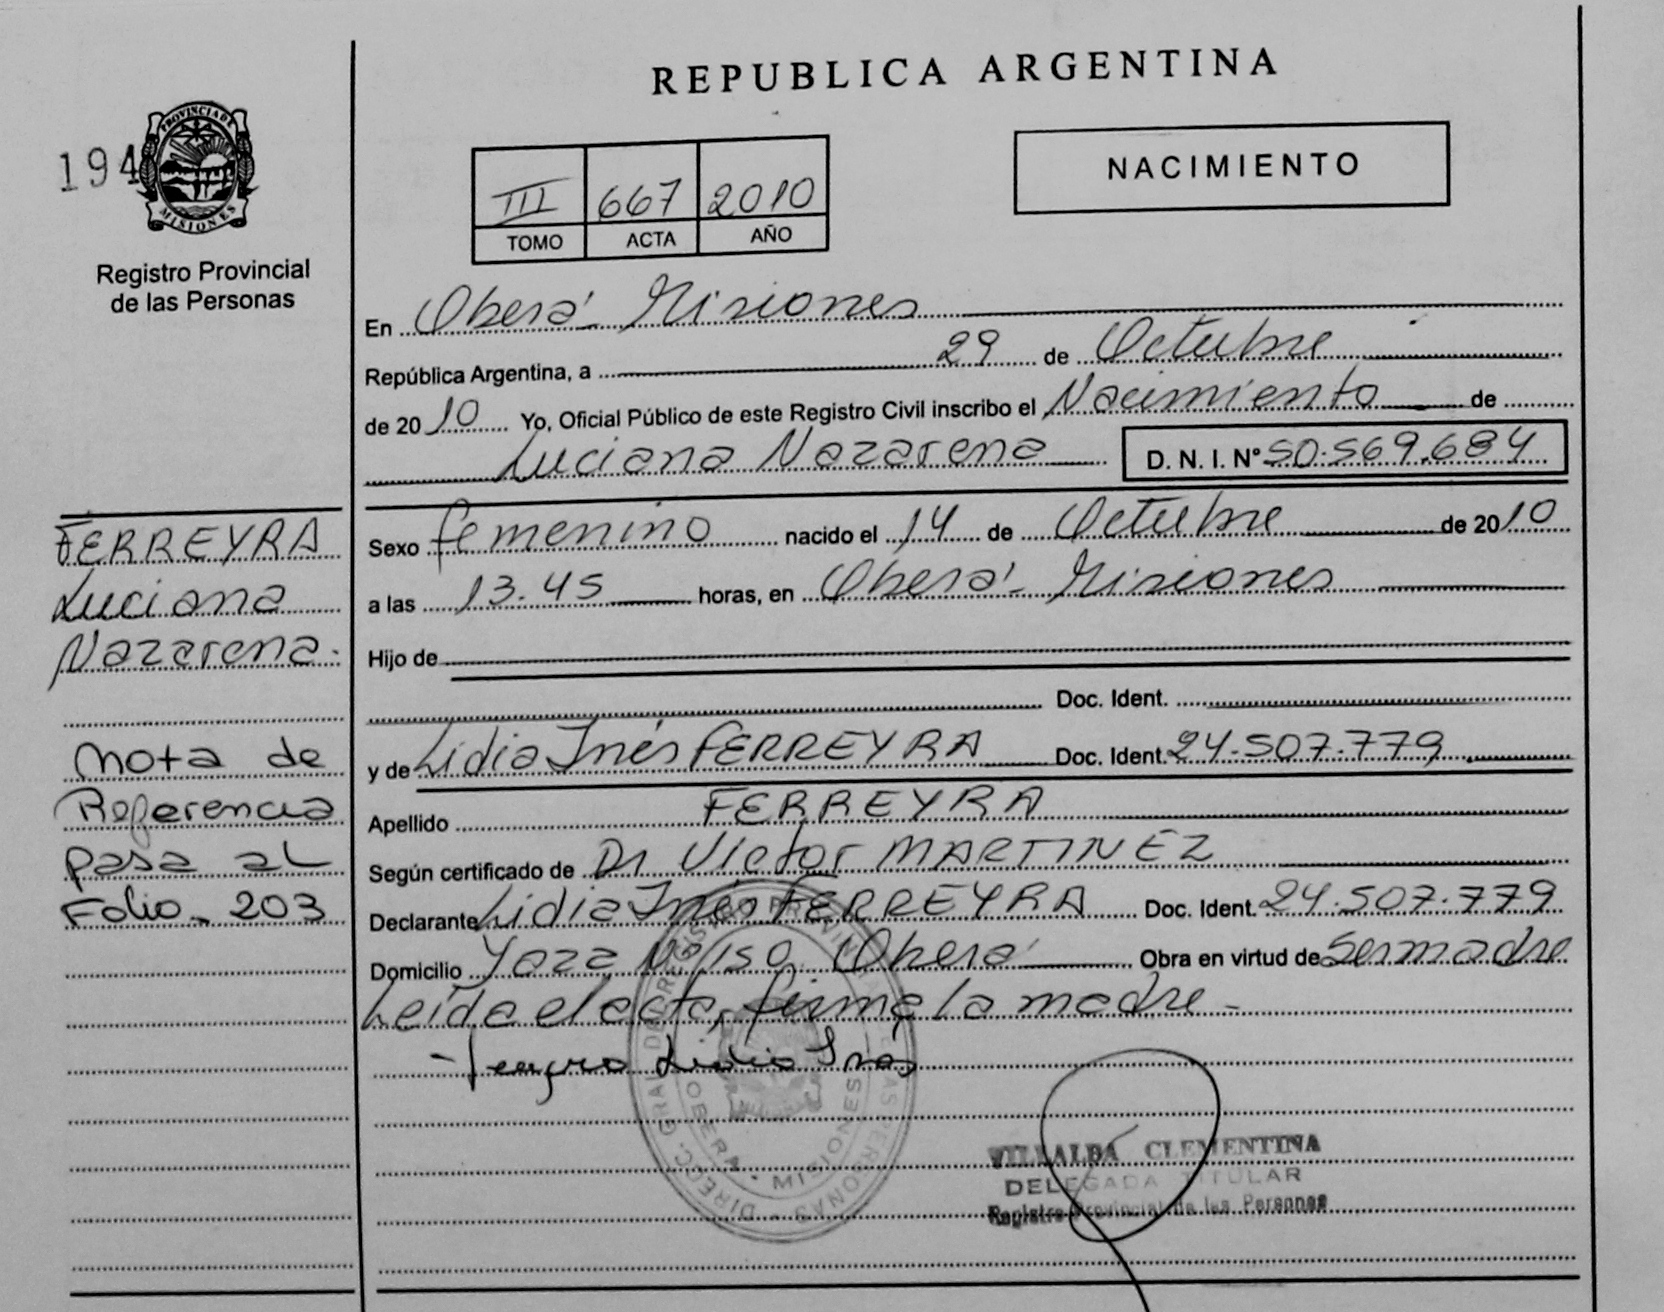 REPUBLICA ARGENTINA
194
PROVINCIA DE
MISIONES
Registro Provincial
de las Personas
III 667 2010
TOMO ACTA AÑO
NACIMIENTO
En Oberá - Misiones
República Argentina, a 29 de Octubre
de 2010 Yo, Oficial Público de este Registro Civil inscribo el Nacimiento de
Luciana Nazarena D. N. I. Nº 50.569.684
FERREYRA
Luciana
Nazarena.
Sexo femenino nacido el 14 de Octubre de 2010
a las 13.45 horas, en Oberá - Misiones
Hijo de
Doc. Ident.
y de Lidia Inés FERREYRA Doc. Ident. 24.507.779
Apellido FERREYRA
Según certificado de Dr Victor MARTINEZ
Declarante Lidia Inés FERREYRA Doc. Ident. 24.507.779
Domicilio Yazá Nº 150, Oberá Obra en virtud de Ser madre
Leída el acta, firma la madre -
Nota de
Referencia
pasa al
Folio - 203
Lidia Ines
DIRECC. GRAL DE REGISTRO PROVINCIAL DE LAS PERSONAS
OBERA - MISIONES
VILLALBA CLEMENTINA
DELEGADA TITULAR
Registro Provincial de las Personas